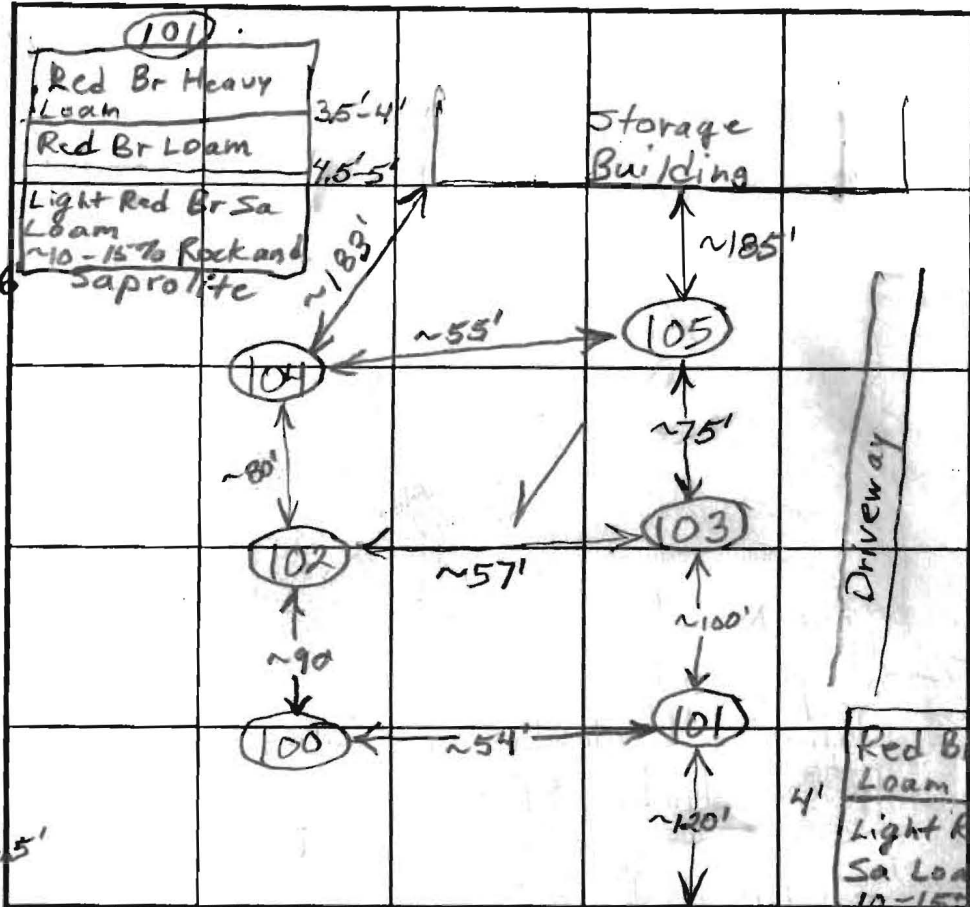 101
Red Br Heavy
Loam
3.5'-4'
Red Br Loam
4.5'-5'
Light Red Br Sa
Loam
~10-15% Rock and
Saprolite
6
Storage
Building
~183'
~185'
~55'
105
104
~75'
~80'
103
102
~57'
Driveway
~100'
~90
101
100
~54'
Red B
Loam
4'
~120'
Light R
Sa Loa
5'
10-15%